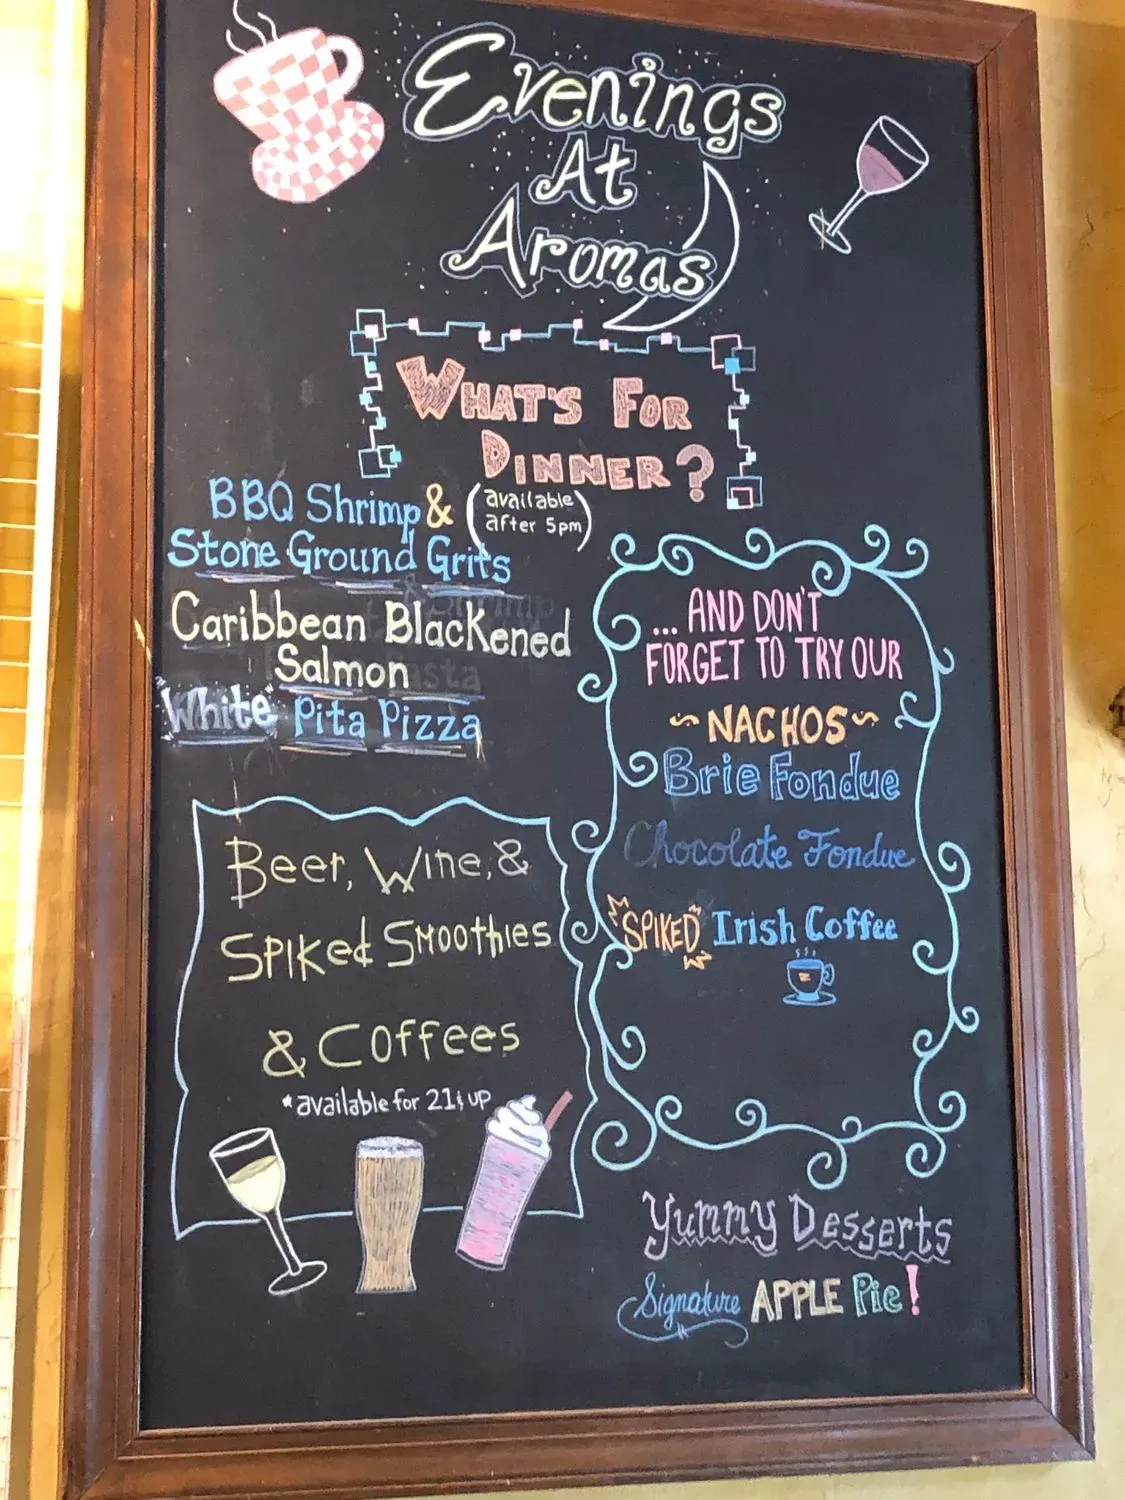 Evenings
At
Aromas
What's For
Dinner?
(available
after 5pm)
BBQ Shrimp &
Stone Ground Grits
Caribbean Blackened
Salmon
"White" Pita Pizza
Beer, Wine, &
Spiked Smoothies
& Coffees
*available for 21 & up
... AND DON'T
FORGET TO TRY OUR
~ NACHOS ~
Brie Fondue
Chocolate Fondue
SPIKED Irish Coffee
Yummy Desserts
Signature APPLE Pie!